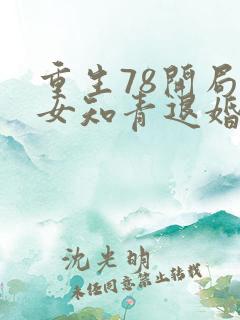 重生78开局
女知青退婚
沈光明
未经同意禁止转载